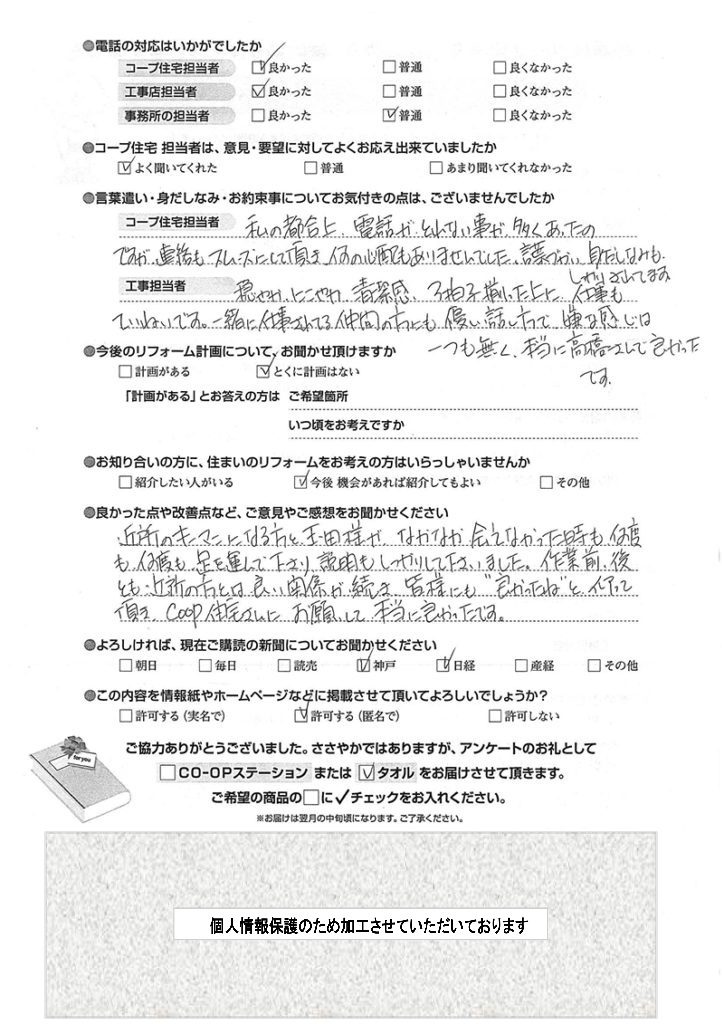 ●電話の対応はいかがでしたか
コープ住宅担当者 ☑良かった □普通 □良くなかった
工事店担当者 ☑良かった □普通 □良くなかった
事務所の担当者 □良かった ☑普通 □良くなかった
●コープ住宅 担当者は、意見・要望に対してよくお応え出来ていましたか
☑よく聞いてくれた □普通 □あまり聞いてくれなかった
●言葉遣い・身だしなみ・お約束事についてお気付きの点は、ございませんでしたか
コープ住宅担当者 私の都合上、電話がとれない事が多くあったの
ですが、連絡もスムーズにして頂き、何の心配もありませんでした。言葉づかい、身だしなみも
しっかりされてます
工事担当者 穏やか、にこやか、清潔感、3拍子揃った上に、仕事も
ていねいです。一緒に仕事されてる仲間の方にも優しい話し方で嫌な感じは
一つも無く、本当に高橋さんで良かった
です。
●今後のリフォーム計画について、お聞かせ頂けますか
□計画がある ☑とくに計画はない
「計画がある」とお答えの方は ご希望箇所
いつ頃をお考えですか
●お知り合いの方に、住まいのリフォームをお考えの方はいらっしゃいませんか
□紹介したい人がいる ☑今後 機会があれば紹介してもよい □その他
●良かった点や改善点など、ご意見やご感想をお聞かせください
近所のキーマンになる方と玉田様が なかなか会えなかった時も何度
も、何度も足を運んで下さり説明もしっかりして下さいました。作業前、後
とも近所の方とは良い関係が続き、皆様にも"良かったね"と、
頂き、COOP住宅さんに お願いして 本当に良かったです。
●よろしければ、現在ご購読の新聞についてお聞かせください
□朝日 □毎日 □読売 ☑神戸 ☑日経 □産経 □その他
●この内容を情報紙やホームページなどに掲載させて頂いてよろしいでしょうか?
□許可する(実名で) ☑許可する(匿名で) □許可しない
for you
ご協力ありがとうございました。ささやかではありますが、アンケートのお礼として
□CO-OPステーション または ☑タオル をお届けさせて頂きます。
ご希望の商品の□に✓チェックをお入れください。
※お届けは翌月の中旬頃になります。ご了承ください。
個人情報保護のため加工させていただいております